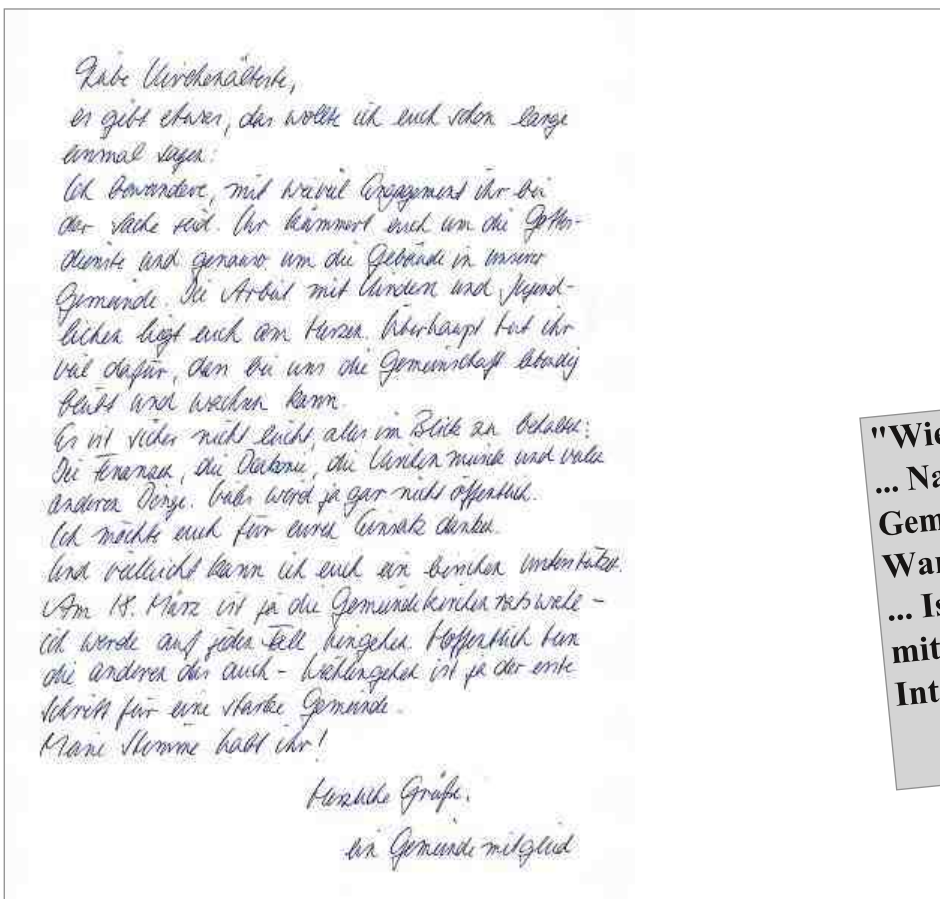 Liebe Kirchenälteste,
es gibt etwas, das wollte ich euch schon lange
einmal sagen:
Ich bewundere, mit wieviel Engagement ihr bei
der Sache seid. Ihr kümmert euch um die Gottes-
dienste und genauso um die Gebäude in unserer
Gemeinde. Die Arbeit mit Kindern und Jugend-
lichen liegt euch am Herzen. Überhaupt tut ihr
viel dafür, dass bei uns die Gemeinschaft lebendig
bleibt und wachsen kann.
Es ist sicher nicht leicht, alles im Blick zu behalten:
Die Finanzen, die Diakonie, die Kirchenmusik und viele
anderen Dinge. Vieles wird ja gar nicht öffentlich.
Ich möchte euch für euren Einsatz danken.
Und vielleicht kann ich euch ein bisschen unterstützen.
Am 18. März ist ja die Gemeindekirchenratswahl -
ich werde auf jeden Fall hingehen. Hoffentlich tun
die anderen das auch - Wählengehen ist ja der erste
Schritt für eine starke Gemeinde.
Meine Stimme habt ihr!
Herzliche Grüße,
ein Gemeindemitglied
"Wie
... Na
Gem
War
... Is
mit
Int